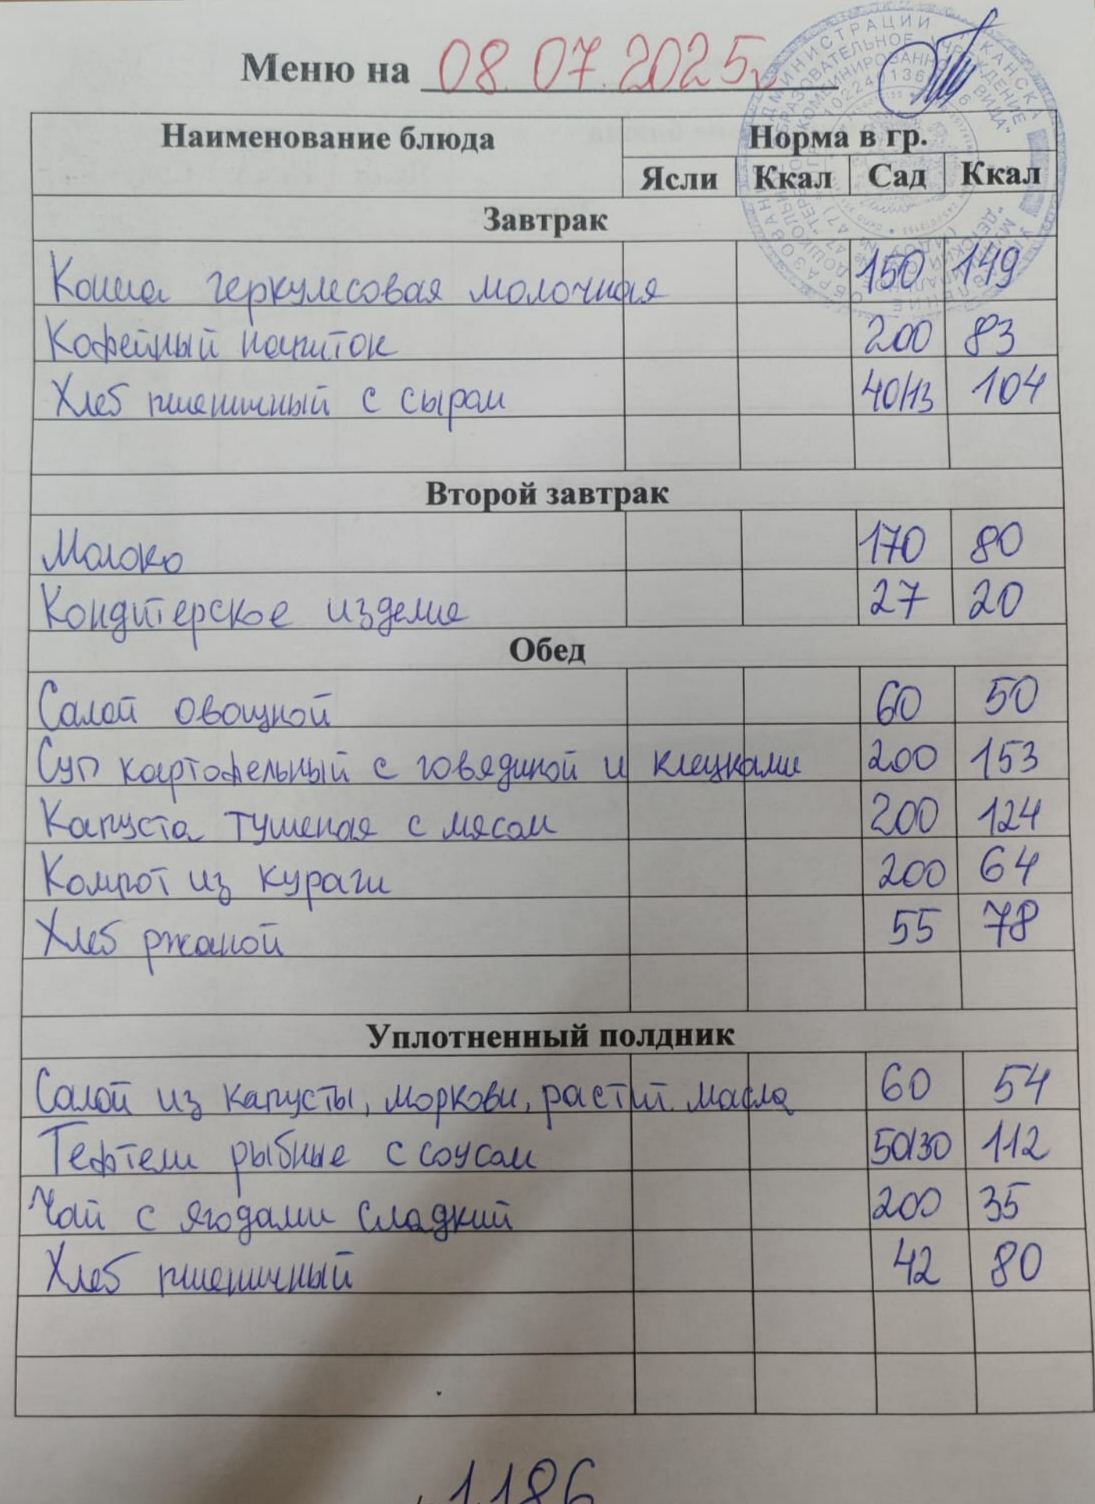 Меню на 08.07.2025г
Наименование блюда Норма в гр.
Ясли Ккал Сад Ккал
Завтрак
Каша геркулесовая молочная 150 149
Кофейный напиток 200 83
Хлеб пшеничный с сыром 40/13 104
Второй завтрак
Молоко 170 80
Кондитерское изделие 27 20
Обед
Салат овощной 60 50
Суп картофельный с говядиной и клецками 200 153
Капуста тушеная с мясом 200 124
Компот из кураги 200 64
Хлеб ржаной 55 78
Уплотненный полдник
Салат из капусты, моркови, растит. масла 60 54
Тефтели рыбные с соусом 50/30 112
Чай с ягодами сладкий 200 35
Хлеб пшеничный 42 80
1186